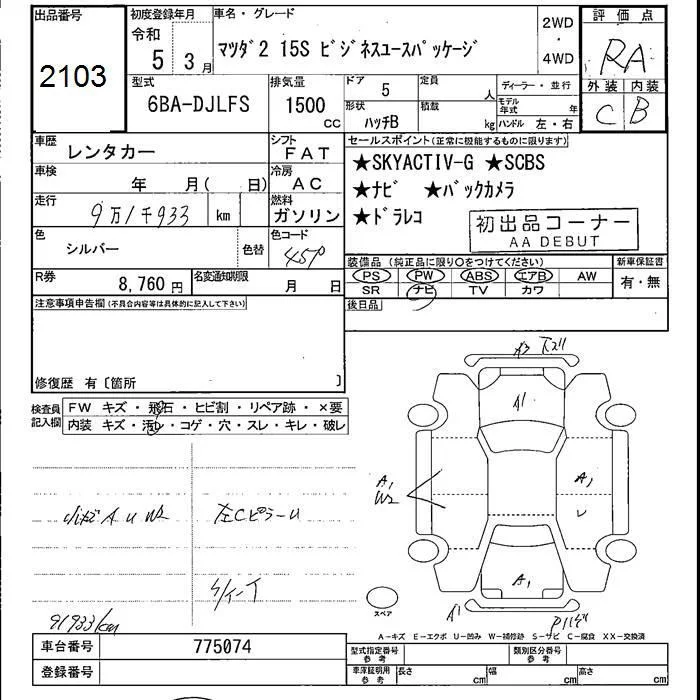 出品番号 初度登録年月 車名・グレード 評価点
2103 令和 5 3月 マツダ2 15S ビジネスユースパッケージ 2WD ・ 4WD RA
型式 排気量 ドア 5 定員 人 ディーラー・並行 外装 内装
6BA-DJLFS 1500 cc 形状 ハッチB 積載 kg モデル年式 年 ハンドル 左・右 C B
車歴 レンタカー シフト FAT セールスポイント(正常に機能するものに限ります)
車検 年 月( 日) 冷房 AC ★SKYACTIV-G ★SCBS
走行 9万1千933 km 燃料 ガソリン ★ナビ ★バックカメラ
★ドラレコ
初出品コーナー
AA DEBUT
色 シルバー 色替 色コード 45P
装備品(純正品に限り○をつけてください) 新車保証書
PS PW ABS エアB AW 有・無
SR ナビ TV カワ
R券 8,760円 名変通知期限 月 日
後日品
注意事項申告欄(不具合内容等は具体的に記入して下さい)
修復歴 有〔箇所 〕
検査員記入欄 FW キズ・飛石・ヒビ割・リペア跡・×要
内装 キズ・汚レ・コゲ・穴・スレ・キレ・破レ
A1
A1 W2
A1
A1
A1
小キズ A U W2
左Cピラー U
スペア
91933km
A-キズ E-エクボ U-凹み W-補修跡 S-サビ C-腐食 XX-交換済
車台番号 775074 型式指定番号 参考 類別区分番号 参考
登録番号 車庫証明用 参考 長さ cm 幅 cm 高さ cm